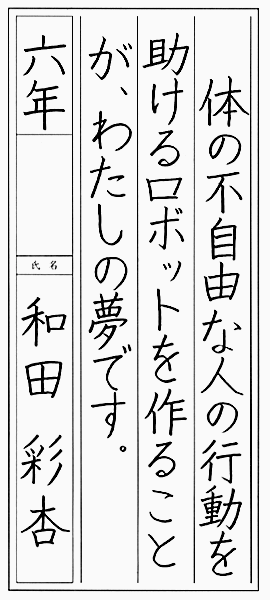 体の不自由な人の行動を
助けるロボットを作ること
が、わたしの夢です。
六年
氏名
和田彩杏